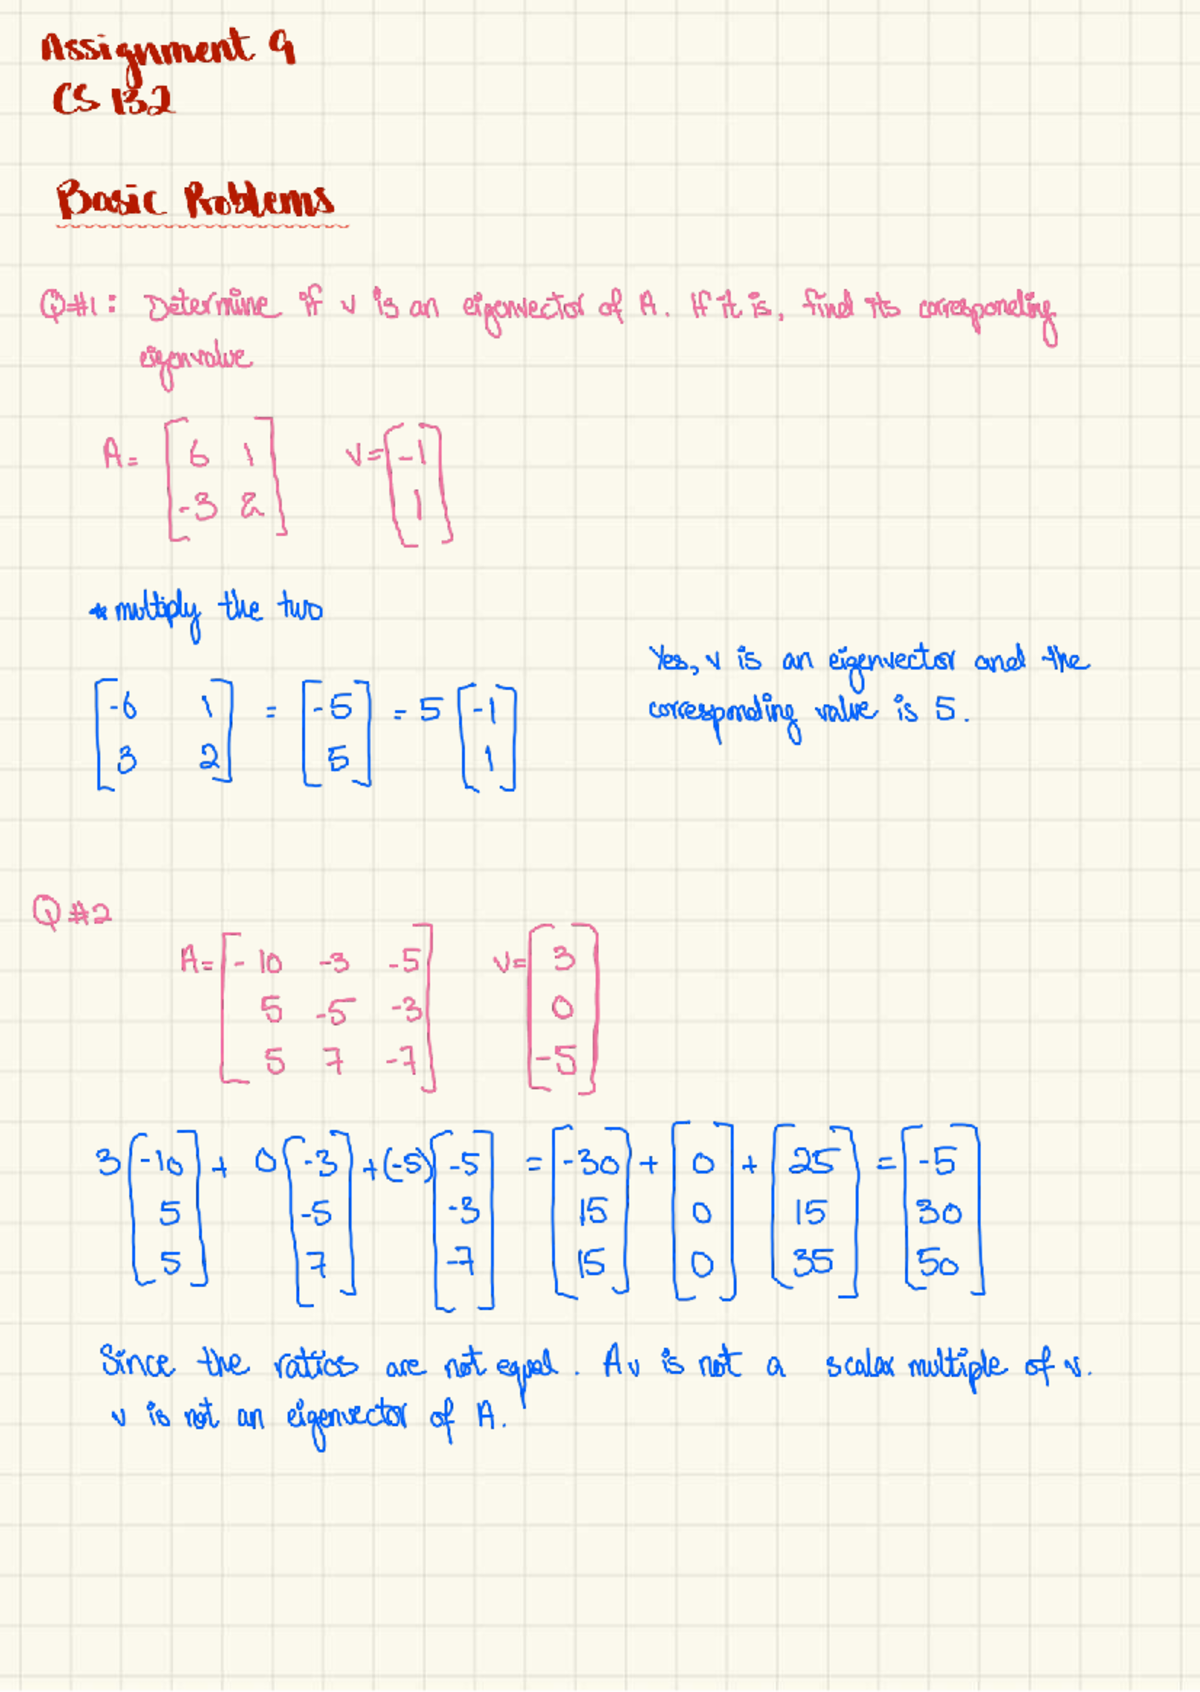 Assignment 9
CS 132
Basic Problems
Q#1: Determine if v is an eigenvector of A. If it is, find its corresponding
eigenvalue
A= [6 1 v= [-1
-3 2] 1]
* multiply the two
Yes, v is an eigenvector and the
corresponding value is 5.
[-6 1 = [-5 = 5 [-1
3 2] 5] 1]
Q#2
A= [-10 -3 -5 v= [3
5 -5 -3 0
5 7 -7] -5]
3 [-10 + 0 [-3 + (-5) [-5 = [-30 + [0 + [25 = [-5
5 -5 -3 15 0 15 30
5] 7] -7] 15] 0] 35] 50]
Since the ratios are not equal. Av is not a scalar multiple of v.
v is not an eigenvector of A.